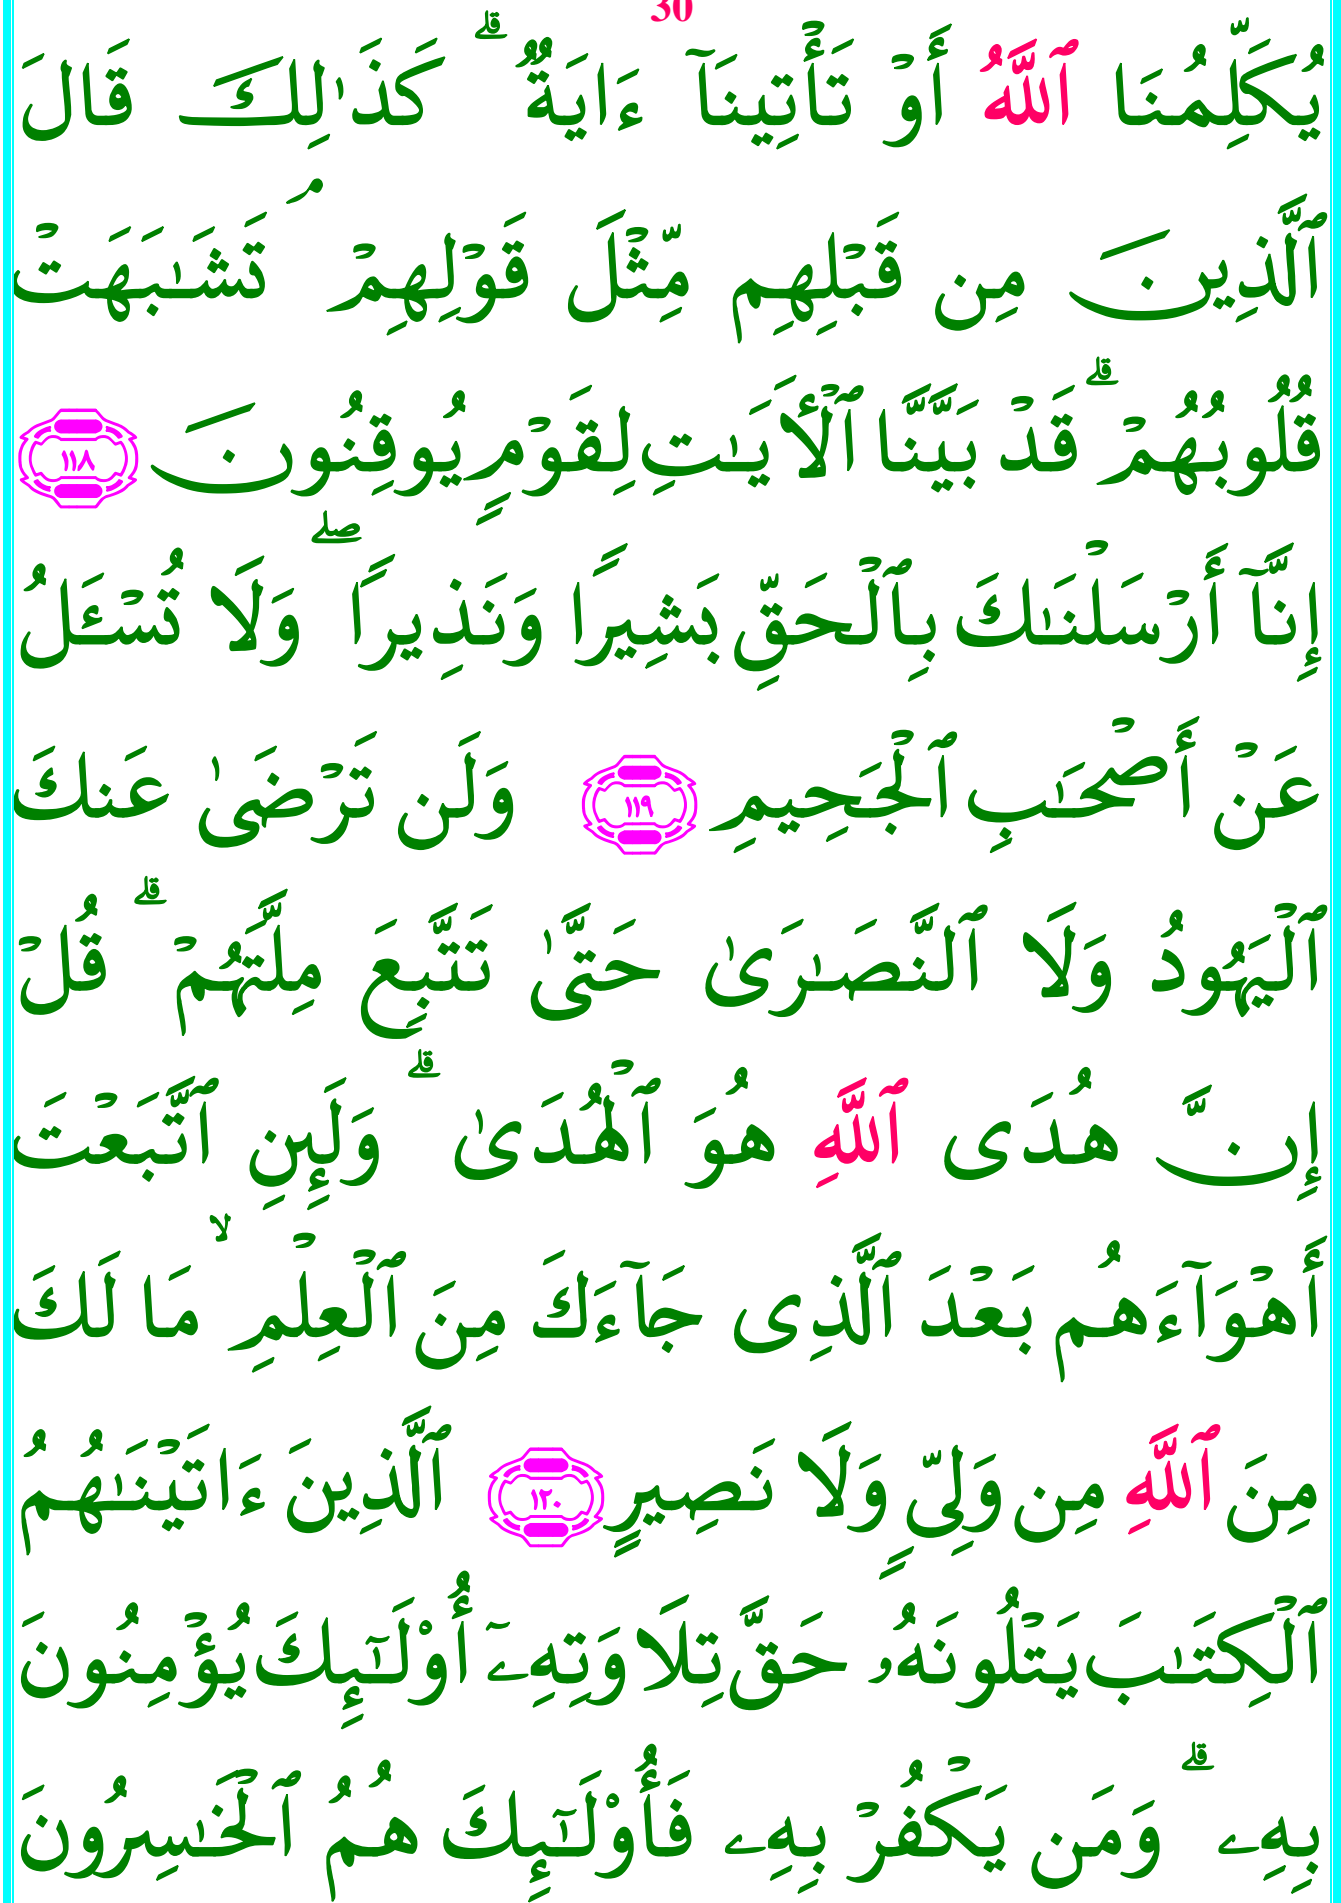 30
يُكَلِّمُنَا ٱللَّهُ أَوْ تَأْتِينَآ ءَايَةٌ ۗ كَذَٰلِكَ قَالَ
ٱلَّذِينَ مِن قَبْلِهِم مِّثْلَ قَوْلِهِمْ ۘ تَشَـٰبَهَتْ
قُلُوبُهُمْ ۗ قَدْ بَيَّنَّا ٱلْأَيَـٰتِ لِقَوْمٍ يُوقِنُونَ ١١٨
إِنَّآ أَرْسَلْنَـٰكَ بِٱلْحَقِّ بَشِيرًا وَنَذِيرًا ۖ وَلَا تُسْـَٔلُ
عَنْ أَصْحَـٰبِ ٱلْجَحِيمِ ١١٩ وَلَن تَرْضَىٰ عَنكَ
ٱلْيَهُودُ وَلَا ٱلنَّصَـٰرَىٰ حَتَّىٰ تَتَّبِعَ مِلَّتَهُمْ ۗ قُلْ
إِنَّ هُدَى ٱللَّهِ هُوَ ٱلْهُدَىٰ ۗ وَلَئِنِ ٱتَّبَعْتَ
أَهْوَآءَهُم بَعْدَ ٱلَّذِى جَآءَكَ مِنَ ٱلْعِلْمِ ۙ مَا لَكَ
مِنَ ٱللَّهِ مِن وَلِىٍّ وَلَا نَصِيرٍ ١٢٠ ٱلَّذِينَ ءَاتَيْنَـٰهُمُ
ٱلْكِتَـٰبَ يَتْلُونَهُۥ حَقَّ تِلَاوَتِهِۦٓ أُوْلَـٰٓئِكَ يُؤْمِنُونَ
بِهِۦ ۗ وَمَن يَكْفُرْ بِهِۦ فَأُوْلَـٰٓئِكَ هُمُ ٱلْخَـٰسِرُونَ